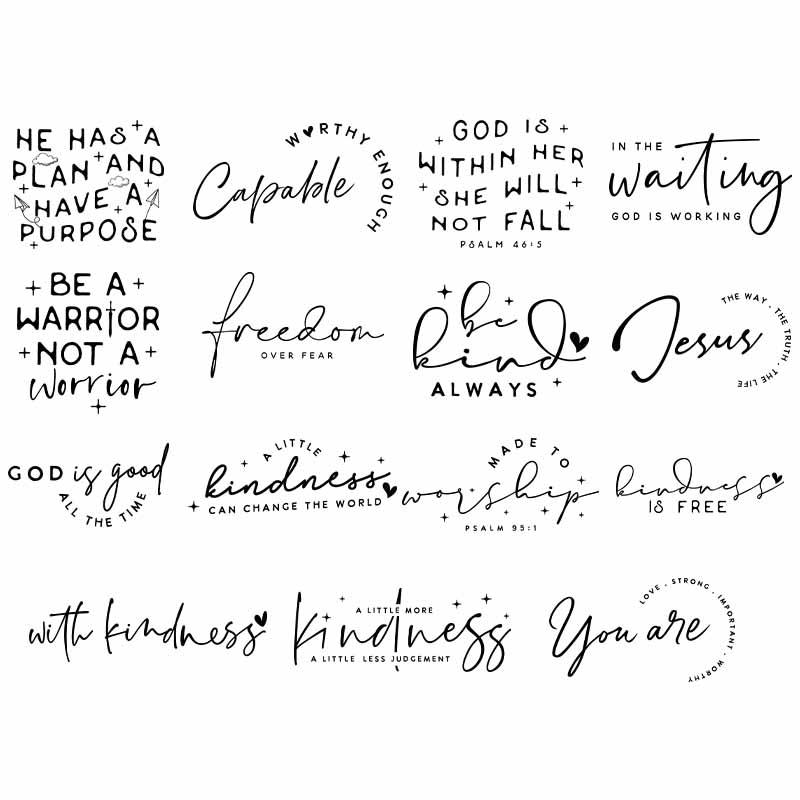 HE HAS A
PLAN AND
HAVE A
PURPOSE
WORTHY ENOUGH
Capable
GOD IS
WITHIN HER
SHE WILL
NOT FALL
PSALM 46:5
IN THE
waiting
GOD IS WORKING
BE A
WARRIOR
NOT A
worrior
freedom
OVER FEAR
be
kind
ALWAYS
Jesus
THE WAY . THE TRUTH . THE LIFE
GOD is good
ALL THE TIME
A LITTLE
kindness
CAN CHANGE THE WORLD
MADE TO
worship
PSALM 95:1
kindness
IS FREE
with kindness
A LITTLE MORE
kindness
A LITTLE LESS JUDGEMENT
You are
LOVE . STRONG . IMPORTANT . WORTHY